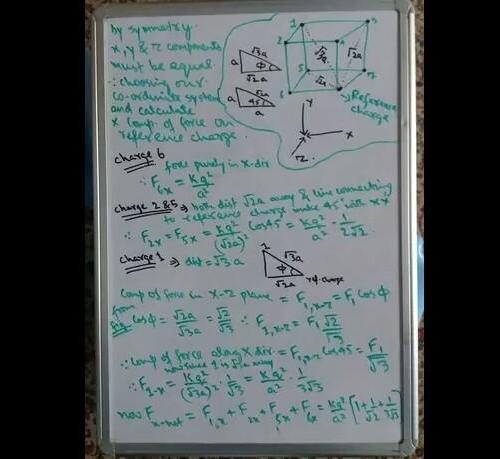 by symmetry
x, y & z components
must be equal
∴ choosing our
co-ordinate system
and calculate
x comp. of force on
reference charge.
a √3a φ √2a
a √2a 45 a
1 2 5 6 3 7
√3a √2a √2a
Reference
charge
Y
X
Z
charge 6
force purely in x-dir
∴ F6x = Kq²/a²
charge 2 & 5 ⇒ both dist √2a away & line connecting
to reference charge make 45° with x
∴ F2x = F5x = Kq²/(√2a)² cos45 = Kq²/a² · 1/2√2
charge 1 ⇒ dist = √3a
1 √3a φ √2a ref. charge
Comp of force in x-z plane = F1,x-z = F1 cosφ
from
fig cosφ = √2a/√3a = √2/√3 ∴ F1,x-z = F1 √2/√3
∴ comp of force along x dir = F1,x-z cos45 = F1/√3
now since 1 is √3a away
∴ F1-x = Kq²/(√3a)² · 1/√3 = Kq²/a² · 1/3√3
now Fx-net = F1x + F2x + F5x + F6x = Kq²/a² [1 + 1/√2 + 1/3√3]